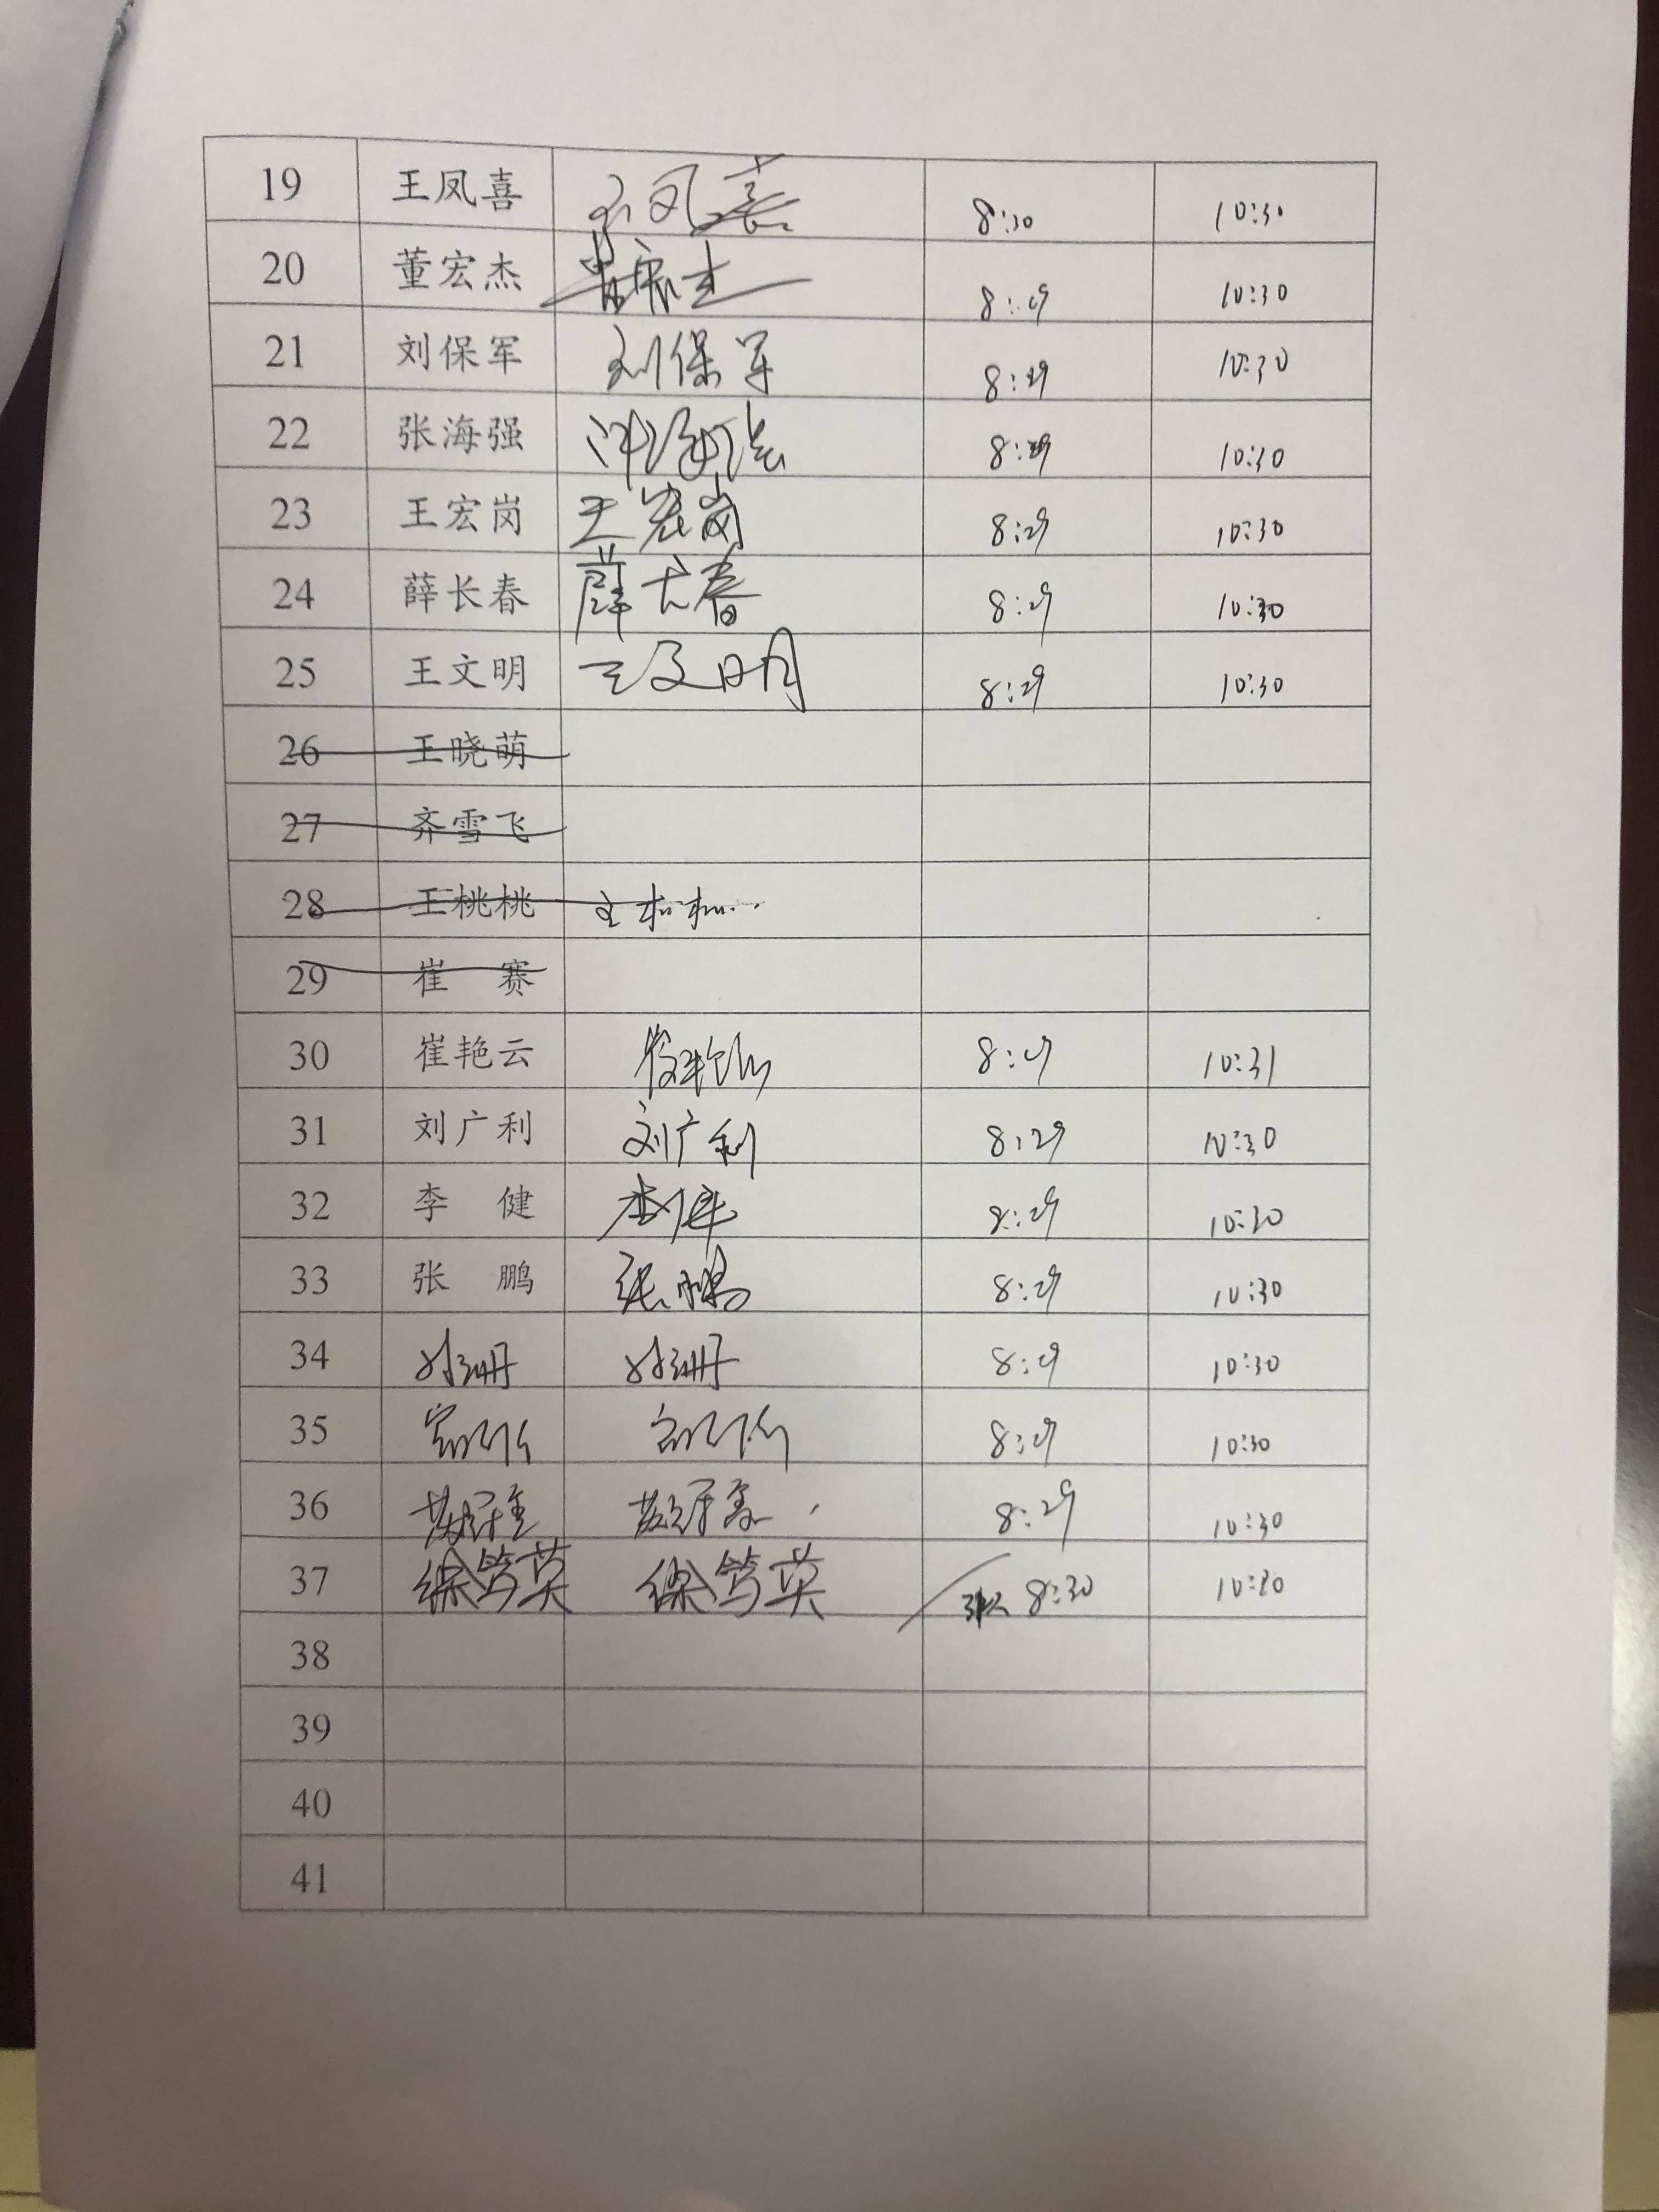 19 王凤喜 王凤喜 8:30 10:30
20 董宏杰 董宏杰 8:29 10:30
21 刘保军 刘保军 8:29 10:30
22 张海强 张海强 8:29 10:30
23 王宏岗 王宏岗 8:29 10:30
24 薛长春 薛长春 8:29 10:30
25 王文明 王文明 8:29 10:30
26 王晓萌
27 齐雪飞
28 王桃桃 王桃桃
29 崔 赛
30 崔艳云 崔艳云 8:29 10:31
31 刘广利 刘广利 8:29 10:30
32 李 健 李健 8:29 10:30
33 张 鹏 张鹏 8:29 10:30
34 8:29 10:30
35 8:29 10:30
36 8:29 10:30
37 徐笃英 徐笃英 8:30 10:30
38
39
40
41